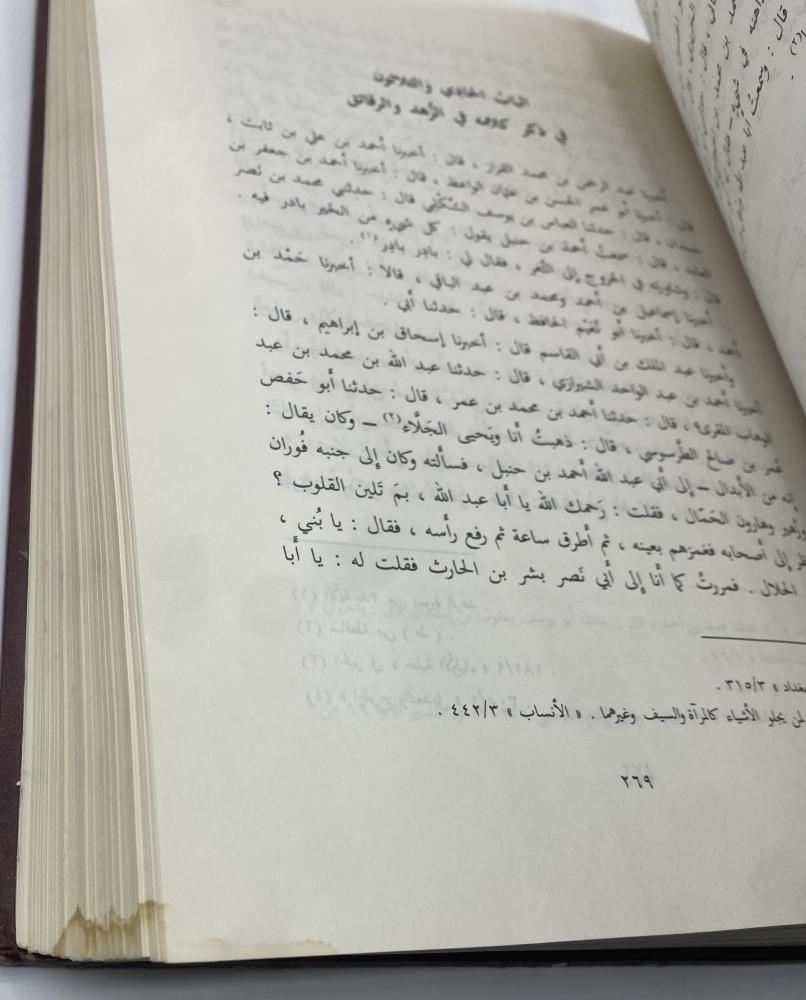 الباب الحادي والثلاثون
في ذكر كلامه في الزهد والرقائق
أخبرنا عبد الرحمن بن محمد القزاز ، قال : أخبرنا أحمد بن علي بن ثابت ،
قال : أخبرنا أبو عمر الحسن بن عثمان الواعظ ، قال : أخبرنا أحمد بن جعفر بن
حمدان ، قال : حدثنا العباس بن يوسف الشكلي قال : حدثني محمد بن نصر
العابد ، قال : سمعت أحمد بن حنبل يقول : كل شيء من الخير بادر فيه .
قال : وشاورته في الخروج إلى الثغر ، فقال لي : بادر بادر(١) .
أخبرنا إسماعيل بن أحمد ومحمد بن عبد الباقي ، قالا : أخبرنا حَمْد بن
أحمد ، قال : أخبرنا أبو نُعَيْم الحافظ ، قال : حدثنا أبي .
وأخبرنا عبد الملك بن أبي القاسم قال : أخبرنا إسحاق بن إبراهيم ، قال :
أخبرنا أحمد بن عبد الواحد الشيرازي ، قال : حدثنا عبد الله بن محمد بن عبد
الوهاب المقرىء ، قال : حدثنا أحمد بن محمد بن عمر ، قال : حدثنا أبو حَفص
عُمر بن صالح الطَّرسوسي ، قال : ذهبتُ أنا ويَحيى الجَلَّاء(٢) – وكان يقال :
إنه من الأبدال – إلى أبي عبد الله أحمد بن حنبل ، فسألته وكان إلى جنبه فُوران
وزهير وهارون الحَمّال ، فقلت : رَحمك الله يا أبا عبد الله ، بمَ تَلين القلوب ؟
إلى أصحابه فغمزهم بعينه ، ثم أطرق ساعة ثم رفع رأسه ، فقال : يا بُني ،
الحلال . فمررتُ كما أنا إلى أبي نَصر بشر بن الحارث فقلت له : يا أبا
» ٣١٥/٣ .
لمن يجلو الأشياء كالمرآة والسيف وغيرهما . « الأنساب » ٤٤٢/٣ .
٢٦٩